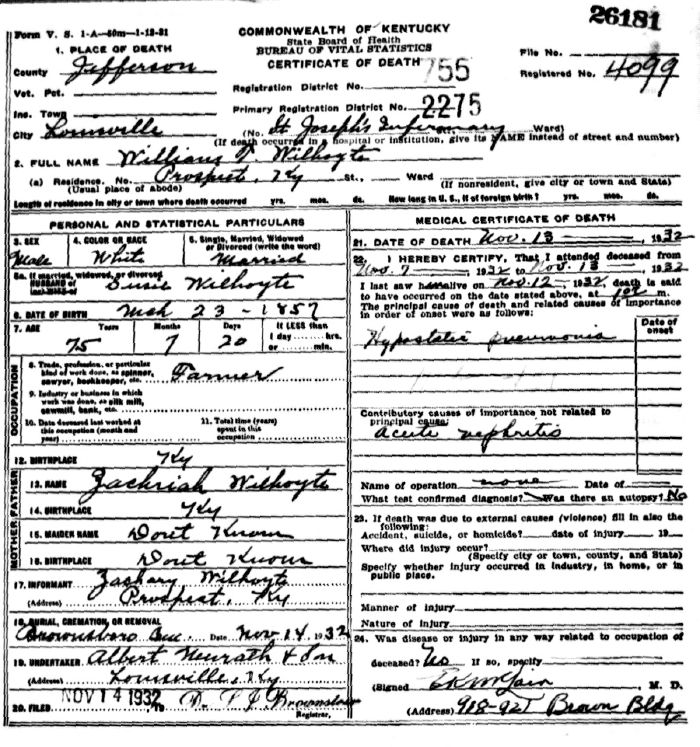 26181
Form V. S. 1-A—50m—1-12-31
COMMONWEALTH OF KENTUCKY
State Board of Health
BUREAU OF VITAL STATISTICS
CERTIFICATE OF DEATH
File No.
Registered No. 4099
1. PLACE OF DEATH
County Jefferson
Vot. Pct.
Inc. Town
City Louisville
Registration District No. 755
Primary Registration District No. 2275
(No. St Joseph's Infirmary St. Ward)
(If death occurred in a hospital or institution, give its NAME instead of street and number)
2. FULL NAME William T. Wilhoyte
(a) Residence. No. Prospect, Ky St., Ward
(Usual place of abode) (If nonresident, give city or town and State)
Length of residence in city or town where death occurred yrs. mos. ds. How long in U. S., if of foreign birth? yrs. mos. ds.
PERSONAL AND STATISTICAL PARTICULARS
3. SEX
Male
4. COLOR OR RACE
White
5. Single, Married, Widowed or Divorced (write the word)
Married
5a. If married, widowed, or divorced
HUSBAND of
(or) WIFE of Susie Wilhoyte
6. DATE OF BIRTH Mch 23 - 1857
7. AGE Years Months Days If LESS than
75 7 20 1 day hrs.
or min.
OCCUPATION
8. Trade, profession, or particular
kind of work done, as spinner,
sawyer, bookkeeper, etc. Farmer
9. Industry or business in which
work was done, as silk mill,
sawmill, bank, etc.
10. Date deceased last worked at
this occupation (month and
year)
11. Total time (years)
spent in this
occupation
12. BIRTHPLACE Ky
FATHER
13. NAME Zachriah Wilhoyte
14. BIRTHPLACE Ky
MOTHER
15. MAIDEN NAME Dont Know
16. BIRTHPLACE Dont Know
17. INFORMANT Zachary Wilhoyte
(Address) Prospect, Ky
18. BURIAL, CREMATION, OR REMOVAL
Brownsboro Cem. Date Nov 14 1932
19. UNDERTAKER Albert Neurath & Son
(Address) Louisville, Ky
20. FILED NOV 14 1932
Registrar.
MEDICAL CERTIFICATE OF DEATH
21. DATE OF DEATH Nov. 13 — , 1932
22. I HEREBY CERTIFY, That I attended deceased from
Nov. 7 — , 1932 to Nov. 13 — , 1932
I last saw him alive on Nov. 12 — , 1932, death is said
to have occurred on the date stated above, at m.
The principal cause of death and related causes of importance
in order of onset were as follows:
Date of
onset
Hypostatic pneumonia
Contributory causes of importance not related to
principal cause:
Acute nephritis
Name of operation none Date of
What test confirmed diagnosis? Was there an autopsy? No
23. If death was due to external causes (violence) fill in also the
following:
Accident, suicide, or homicide? date of injury 19
Where did injury occur?
(Specify city or town, county, and State)
Specify whether injury occurred in industry, in home, or in
public place.
Manner of injury
Nature of injury
24. Was disease or injury in any way related to occupation of
deceased? If so, specify
(Signed) , M. D.
(Address) 918-921 Brown Bldg